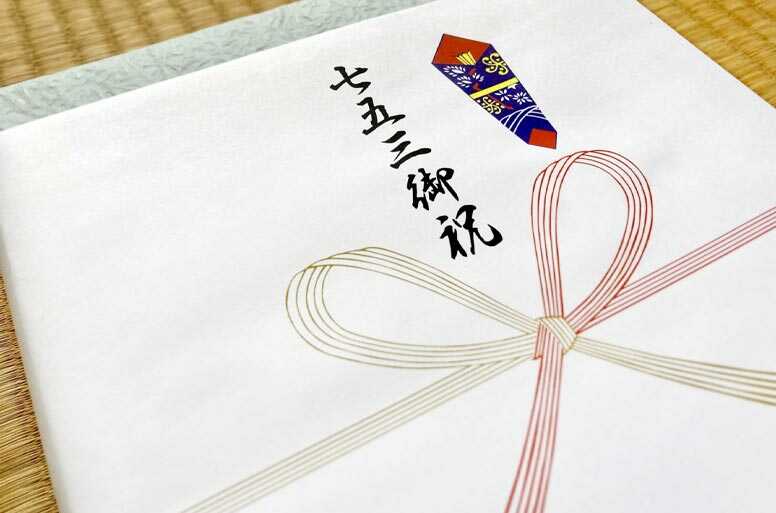 七五三御祝